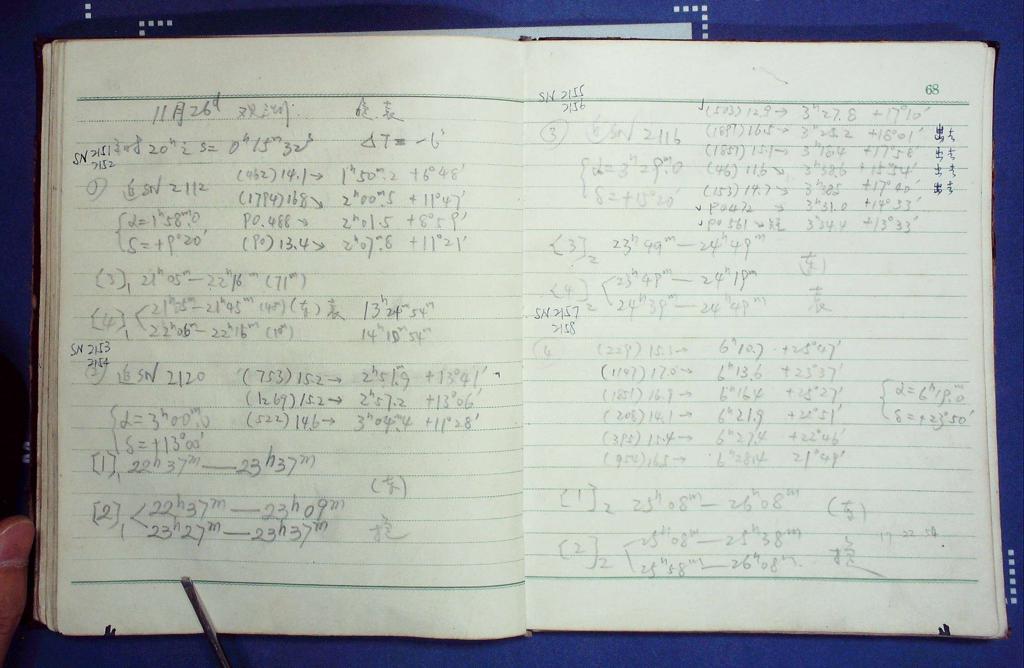 11月26d
SN 2151
2152
20h S= 0h15m32s ΔT= -6'
追SN 2112 (462) 14.1→ 1h50m.2 +6°48'
(1794) 16.8→ 2h00m.5 +11°47'
α=1h58m.0 P0.488→ 2h01.5 +8°59'
δ=+9°20' (90) 13.4→ 2h07.8 +11°21'
[3]1 21h05m—22h16m (71m)
[4]1 21h05m—21h45m (40m) (东) 袁 13h24m54m
22h06m—22h16m (10m) 14h10m54m
SN 2153
2154
追SN 2120 (753) 15.2→ 2h51m.9 +13°41'
(1269) 15.2→ 2h57.2 +13°06'
α=3h00m.0 (522) 14.6→ 3h04m.4 +11°28'
δ=+13°00'
[1]1 22h37m—23h37m
(东)
[2]1 22h37m—23h09m
23h27m—23h37m
68
SN 2155
2156
(503) 12.9→ 3h27.8 +17°10'
③ 追SN 2116 (1897) 16.5→ 3h25.2 +18°01' 出去
α=3h29m.0 (1857) 15.1→ +17°58' 出去
(46) 11.6→ 3h38.6 +15°54' 出去
δ=+15°20' (153) 14.7→ +17°40' 出去
P0472→ 3h31.0 +14°33'
P0561→ 3h34.4 +13°33'
[3]2 23h49m—24h49m
(东)
[4]2 23h49m—24h19m
24h39m—24h49m 袁
SN 2157
2158
(229) 15.1→ 6h10.7 +25°47'
(1147) 17.0→ 6h13.6 +23°37'
(1851) 16.9→ 6h16.4 +25°27' α=6h19m.0
(208) 14.1→ 6h21.9 +22°51' δ=+23°50'
(395) 15.4→ 6h27.4 +22°46'
(954) 16.5→ 6h28.4 21°49'
[1]2 25h08m—26h08m (东)
[2]2 25h08m—25h38m 17 22 54
25h58m—26h08m